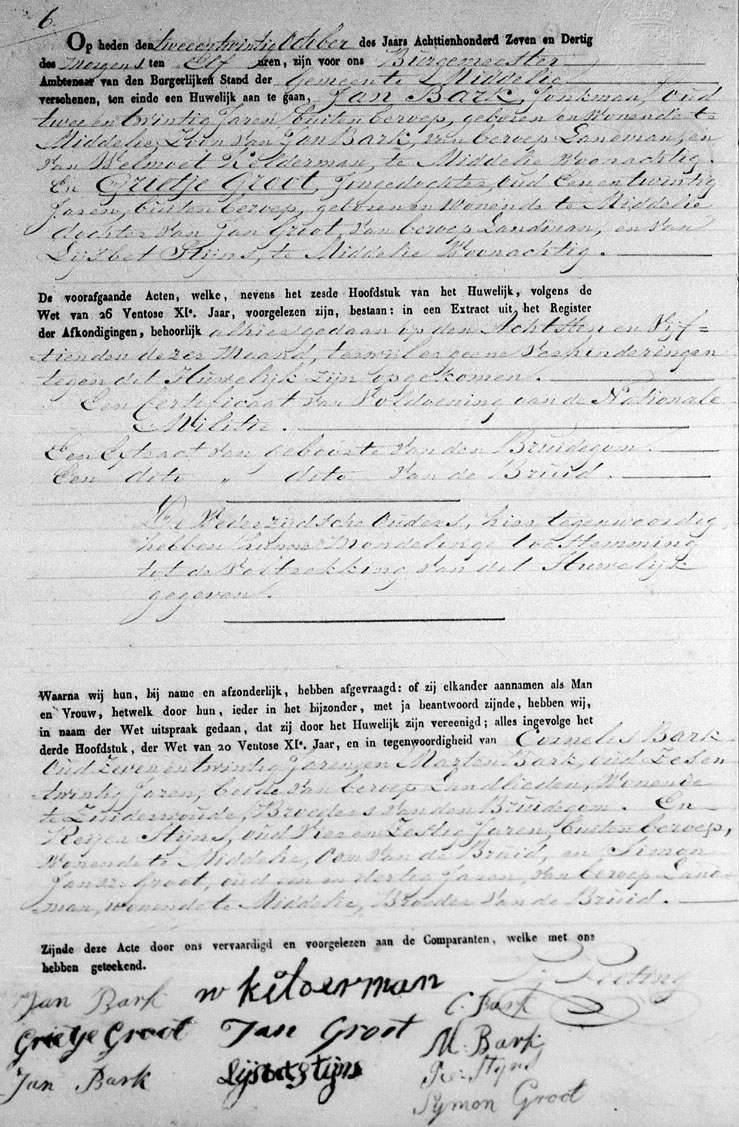 6.
Op heden den twee en twintig October des Jaars Achttienhonderd Zeven en Dertig
des Morgens ten Elf uren, zijn voor ons Burgemeester
Ambtenaar van den Burgerlijken Stand der Gemeente Middelie
verschenen, ten einde een Huwelijk aan te gaan, Jan Bark, Jonkman, Oud
twee en twintig Jaren, buiten beroep, geboren en Wonende te
Middelie, Zoon Van Jan Bark, van beroep Landman, en
Van Welmoet Kilderman, te Middelie Woonachtig.
En Grietje Groot, Jongedochter, Oud Een en twintig
Jaren, buiten beroep, geboren en Wonende te Middelie
dochter Van Jan Groot, Van beroep Landman, en Van
Lijsbet Stijns, te Middelie Woonachtig.
De voorafgaande Acten, welke, nevens het zesde Hoofdstuk van het Huwelijk, volgens de
Wet van 26 Ventose XIe. Jaar, voorgelezen zijn, bestaan: in een Extract uit het Register
der Afkondigingen, behoorlijk alhier gedaan op den Achtsten en Vijf-
tienden dezer Maand, terwijl er geene Verhinderingen
tegen dit Huwelijk zijn opgekomen.
Een Certificaat van Voldoening aan de Nationale
Militie.
Een Extract van geboorte Van den Bruidegom.
Een dito " dito Van de Bruid.
De Wederzijdsche Ouders, hier tegenwoordig
hebben hunne Mondelinge toestemming
tot de Voltrekking Van dit Huwelijk
gegeven.
Waarna wij hun, bij name en afzonderlijk, hebben afgevraagd: of zij elkander aannamen als Man
en Vrouw, hetwelk door hun, ieder in het bijzonder, met ja beantwoord zijnde, hebben wij,
in naam der Wet uitspraak gedaan, dat zij door het Huwelijk zijn vereenigd; alles ingevolge het
derde Hoofdstuk, der Wet van 20 Ventose XIe. Jaar, en in tegenwoordigheid van Cornelis Bark
Oud Zeven en twintig Jaren, en Marten Bark, oud Zes en
twintig Jaren, beide Van beroep Landlieden, Wonende
te Zuiderwoude, Broeders Van den Bruidegom. En
Reijer Stijns, oud Vier en Zestig Jaren, buiten beroep,
Wonende te Middelie, Oom Van de Bruid, en Simon
Jansz. Groot, oud een en dertig Jaren, Van beroep Land-
man, wonende te Middelie, Broeder Van de Bruid.
Zijnde deze Acte door ons vervaardigd en voorgelezen aan de Comparanten, welke met ons
hebben geteekend.
Jan Bark w kilderman C. Bark
Grietje Groot Jan Groot M. Bark
Jan Bark Lijsbet Stijns R. Stijns
Symon Groot